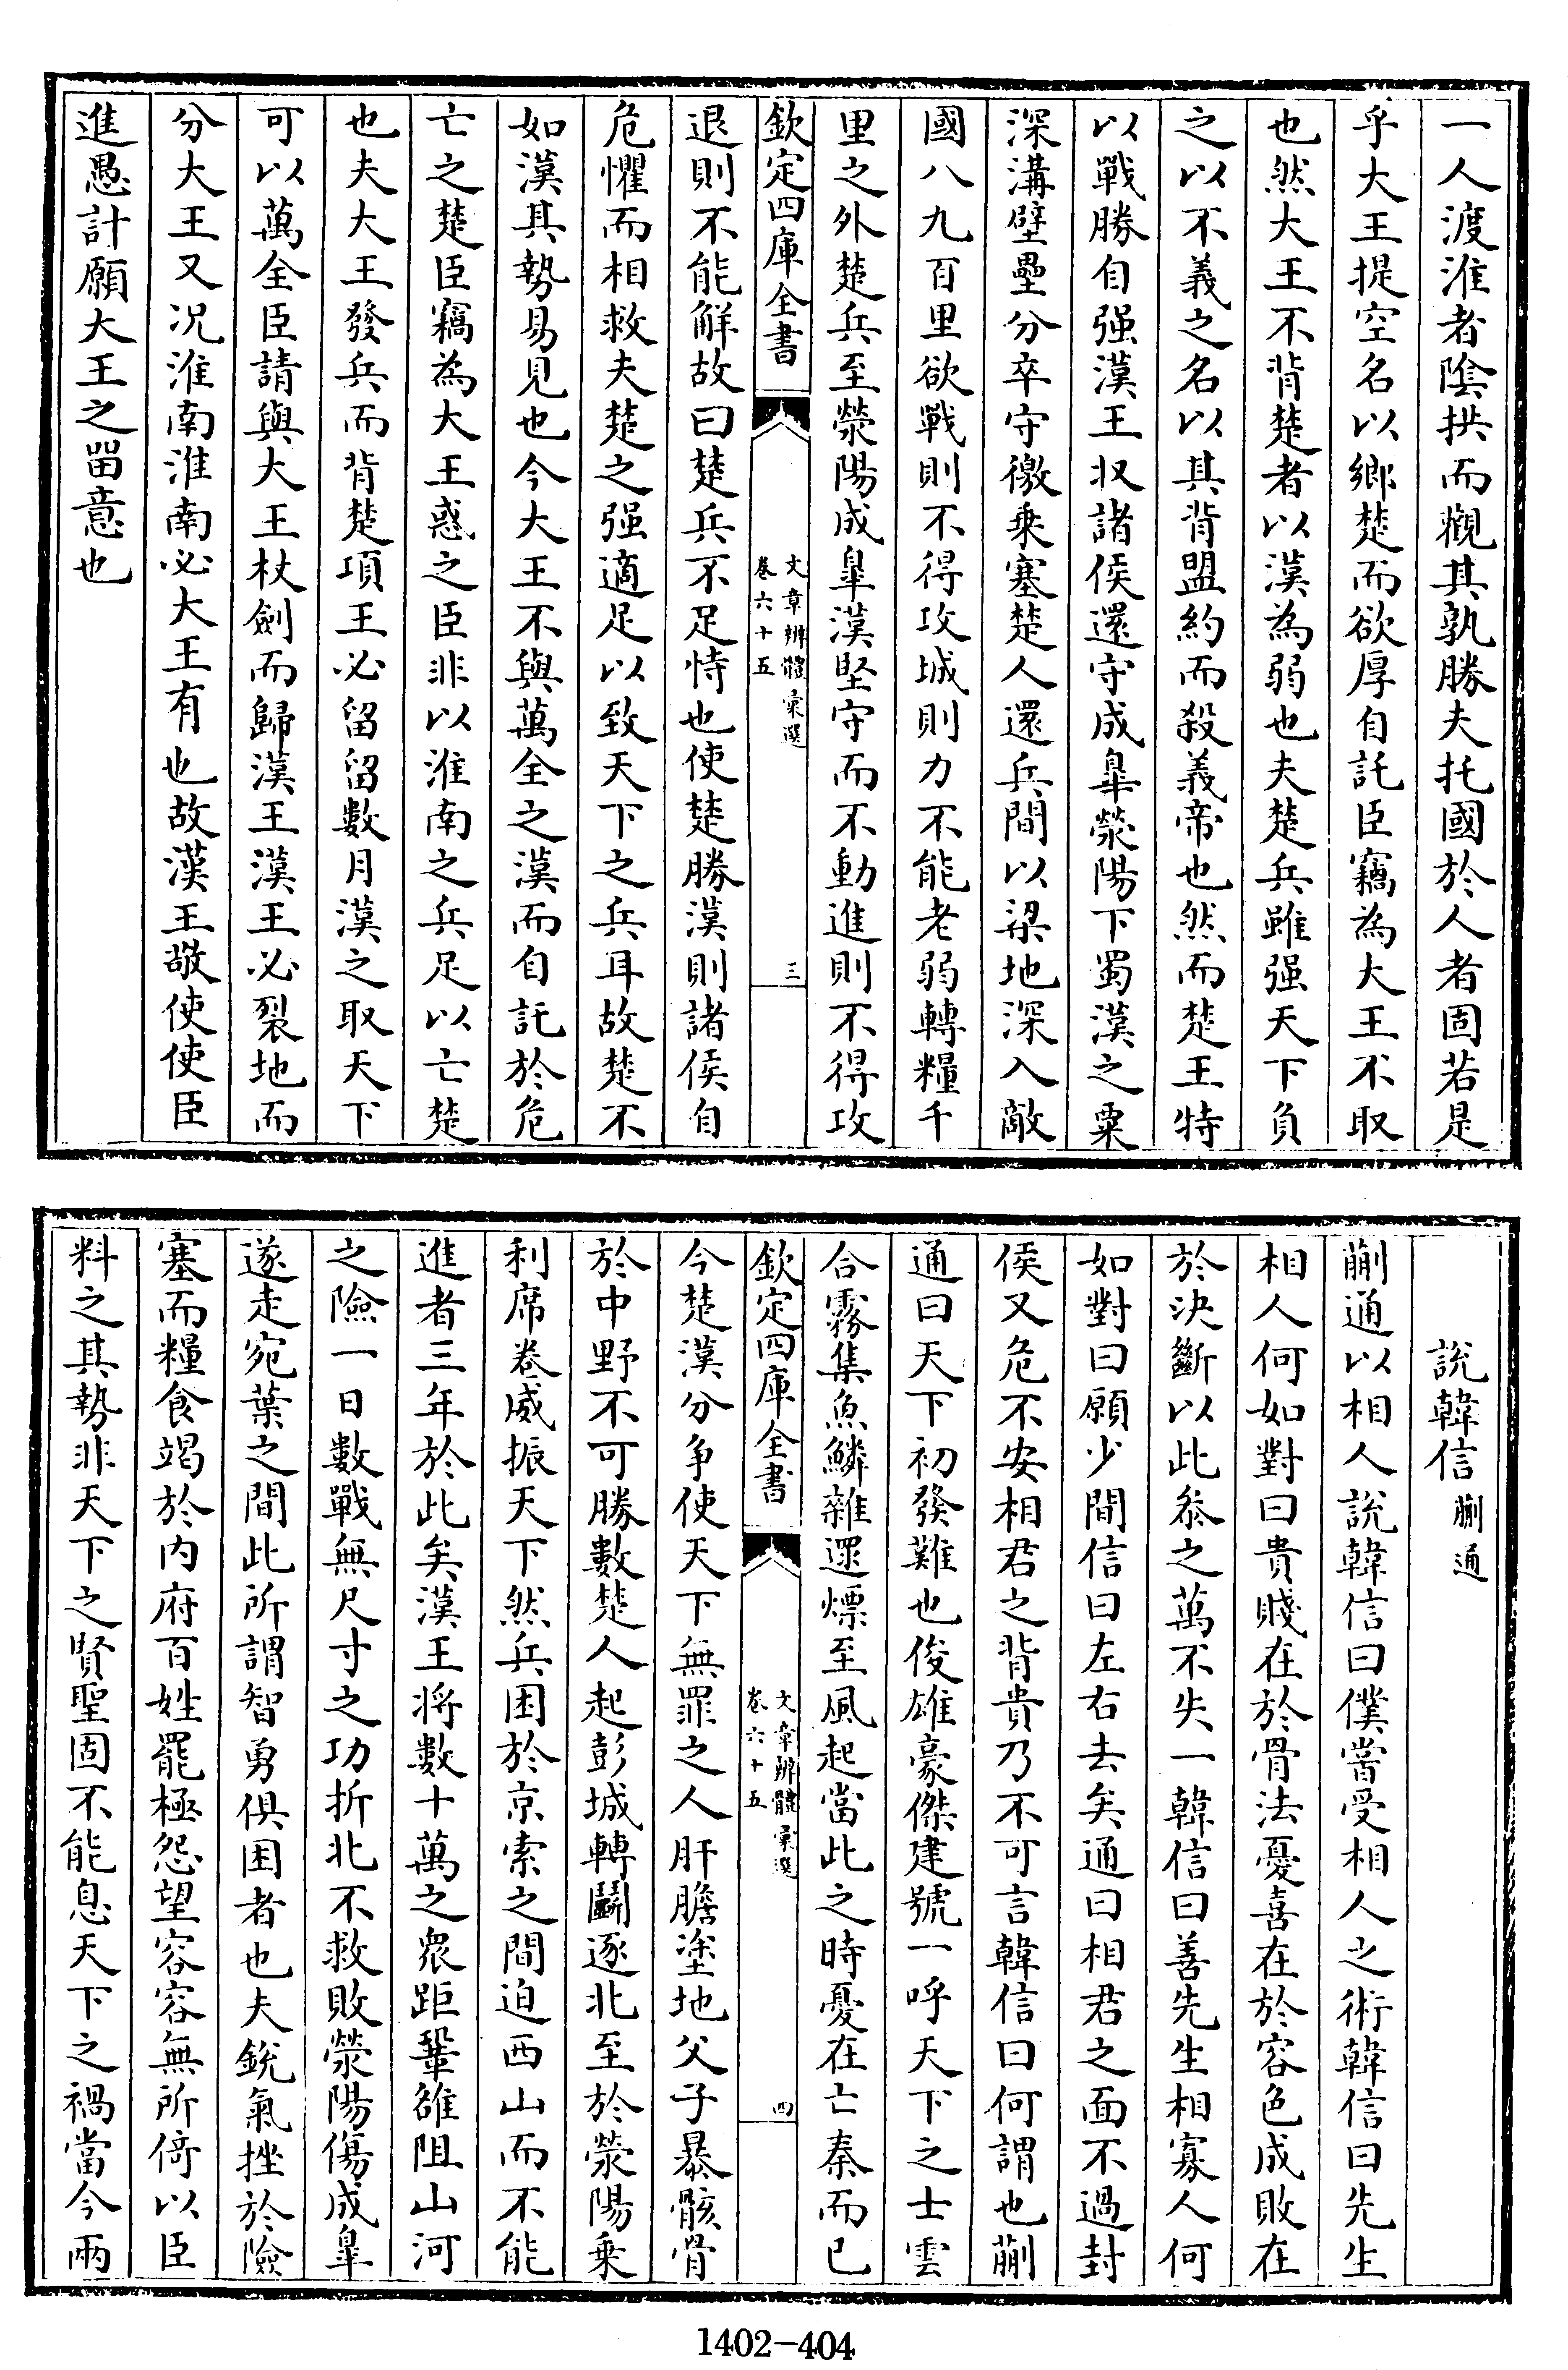 一人渡淮者陰拱而觀其孰勝夫托國於人者固若是
乎大王提空名以鄉楚而欲厚自託臣竊為大王不取
也然大王不背楚者以漢為弱也夫楚兵雖强天下負
之以不義之名以其背盟約而殺義帝也然而楚王特
以戰勝自强漢王収諸侯還守成臯滎陽下蜀漢之粟
深溝壁壘分卒守徼乗塞楚人還兵間以梁地深入敵
國八九百里欲戰則不得攻城則力不能老弱轉糧千
里之外楚兵至滎陽成臯漢堅守而不動進則不得攻
欽定四庫全書
文章辨體彚選
卷六十五
三
退則不能解故曰楚兵不足恃也使楚勝漢則諸侯自
危懼而相救夫楚之强適足以致天下之兵耳故楚不
如漢其勢易見也今大王不與萬全之漢而自託於危
亡之楚臣竊為大王惑之臣非以淮南之兵足以亡楚
也夫大王發兵而背楚項王必留留數月漢之取天下
可以萬全臣請與大王杖劍而歸漢王漢王必裂地而
分大王又况淮南淮南必大王有也故漢王敬使使臣
進愚計願大王之畱意也
說韓信 蒯通
蒯通以相人說韓信曰僕嘗受相人之術韓信曰先生
相人何如對曰貴賤在於骨法憂喜在於容色成敗在
於決斷以此叅之萬不失一韓信曰善先生相寡人何
如對曰願少間信曰左右去矣通曰相君之面不過封
侯又危不安相君之背貴乃不可言韓信曰何謂也蒯
通曰天下初發難也俊雄豪傑建號一呼天下之士雲
合霧集魚鱗雜遝熛至風起當此之時憂在亡秦而已
欽定四庫全書
文章辨體彚選
卷六十五
四
今楚漢分爭使天下無罪之人肝膽塗地父子暴骸骨
於中野不可勝數楚人起彭城轉鬭逐北至於滎陽乗
利席卷威振天下然兵困於京索之間迫西山而不能
進者三年於此矣漢王将數十萬之衆距鞏雒阻山河
之險一日數戰無尺寸之功折北不救敗滎陽傷成臯
遂走宛葉之間此所謂智勇俱困者也夫銳氣挫於險
塞而糧食竭於内府百姓罷極怨望容容無所倚以臣
料之其勢非天下之賢聖固不能息天下之禍當今兩
1402-404